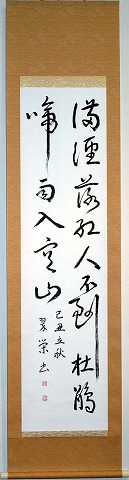 満径落紅人不到杜鵑
啼雨入空山
己丑立秋
翠栄書